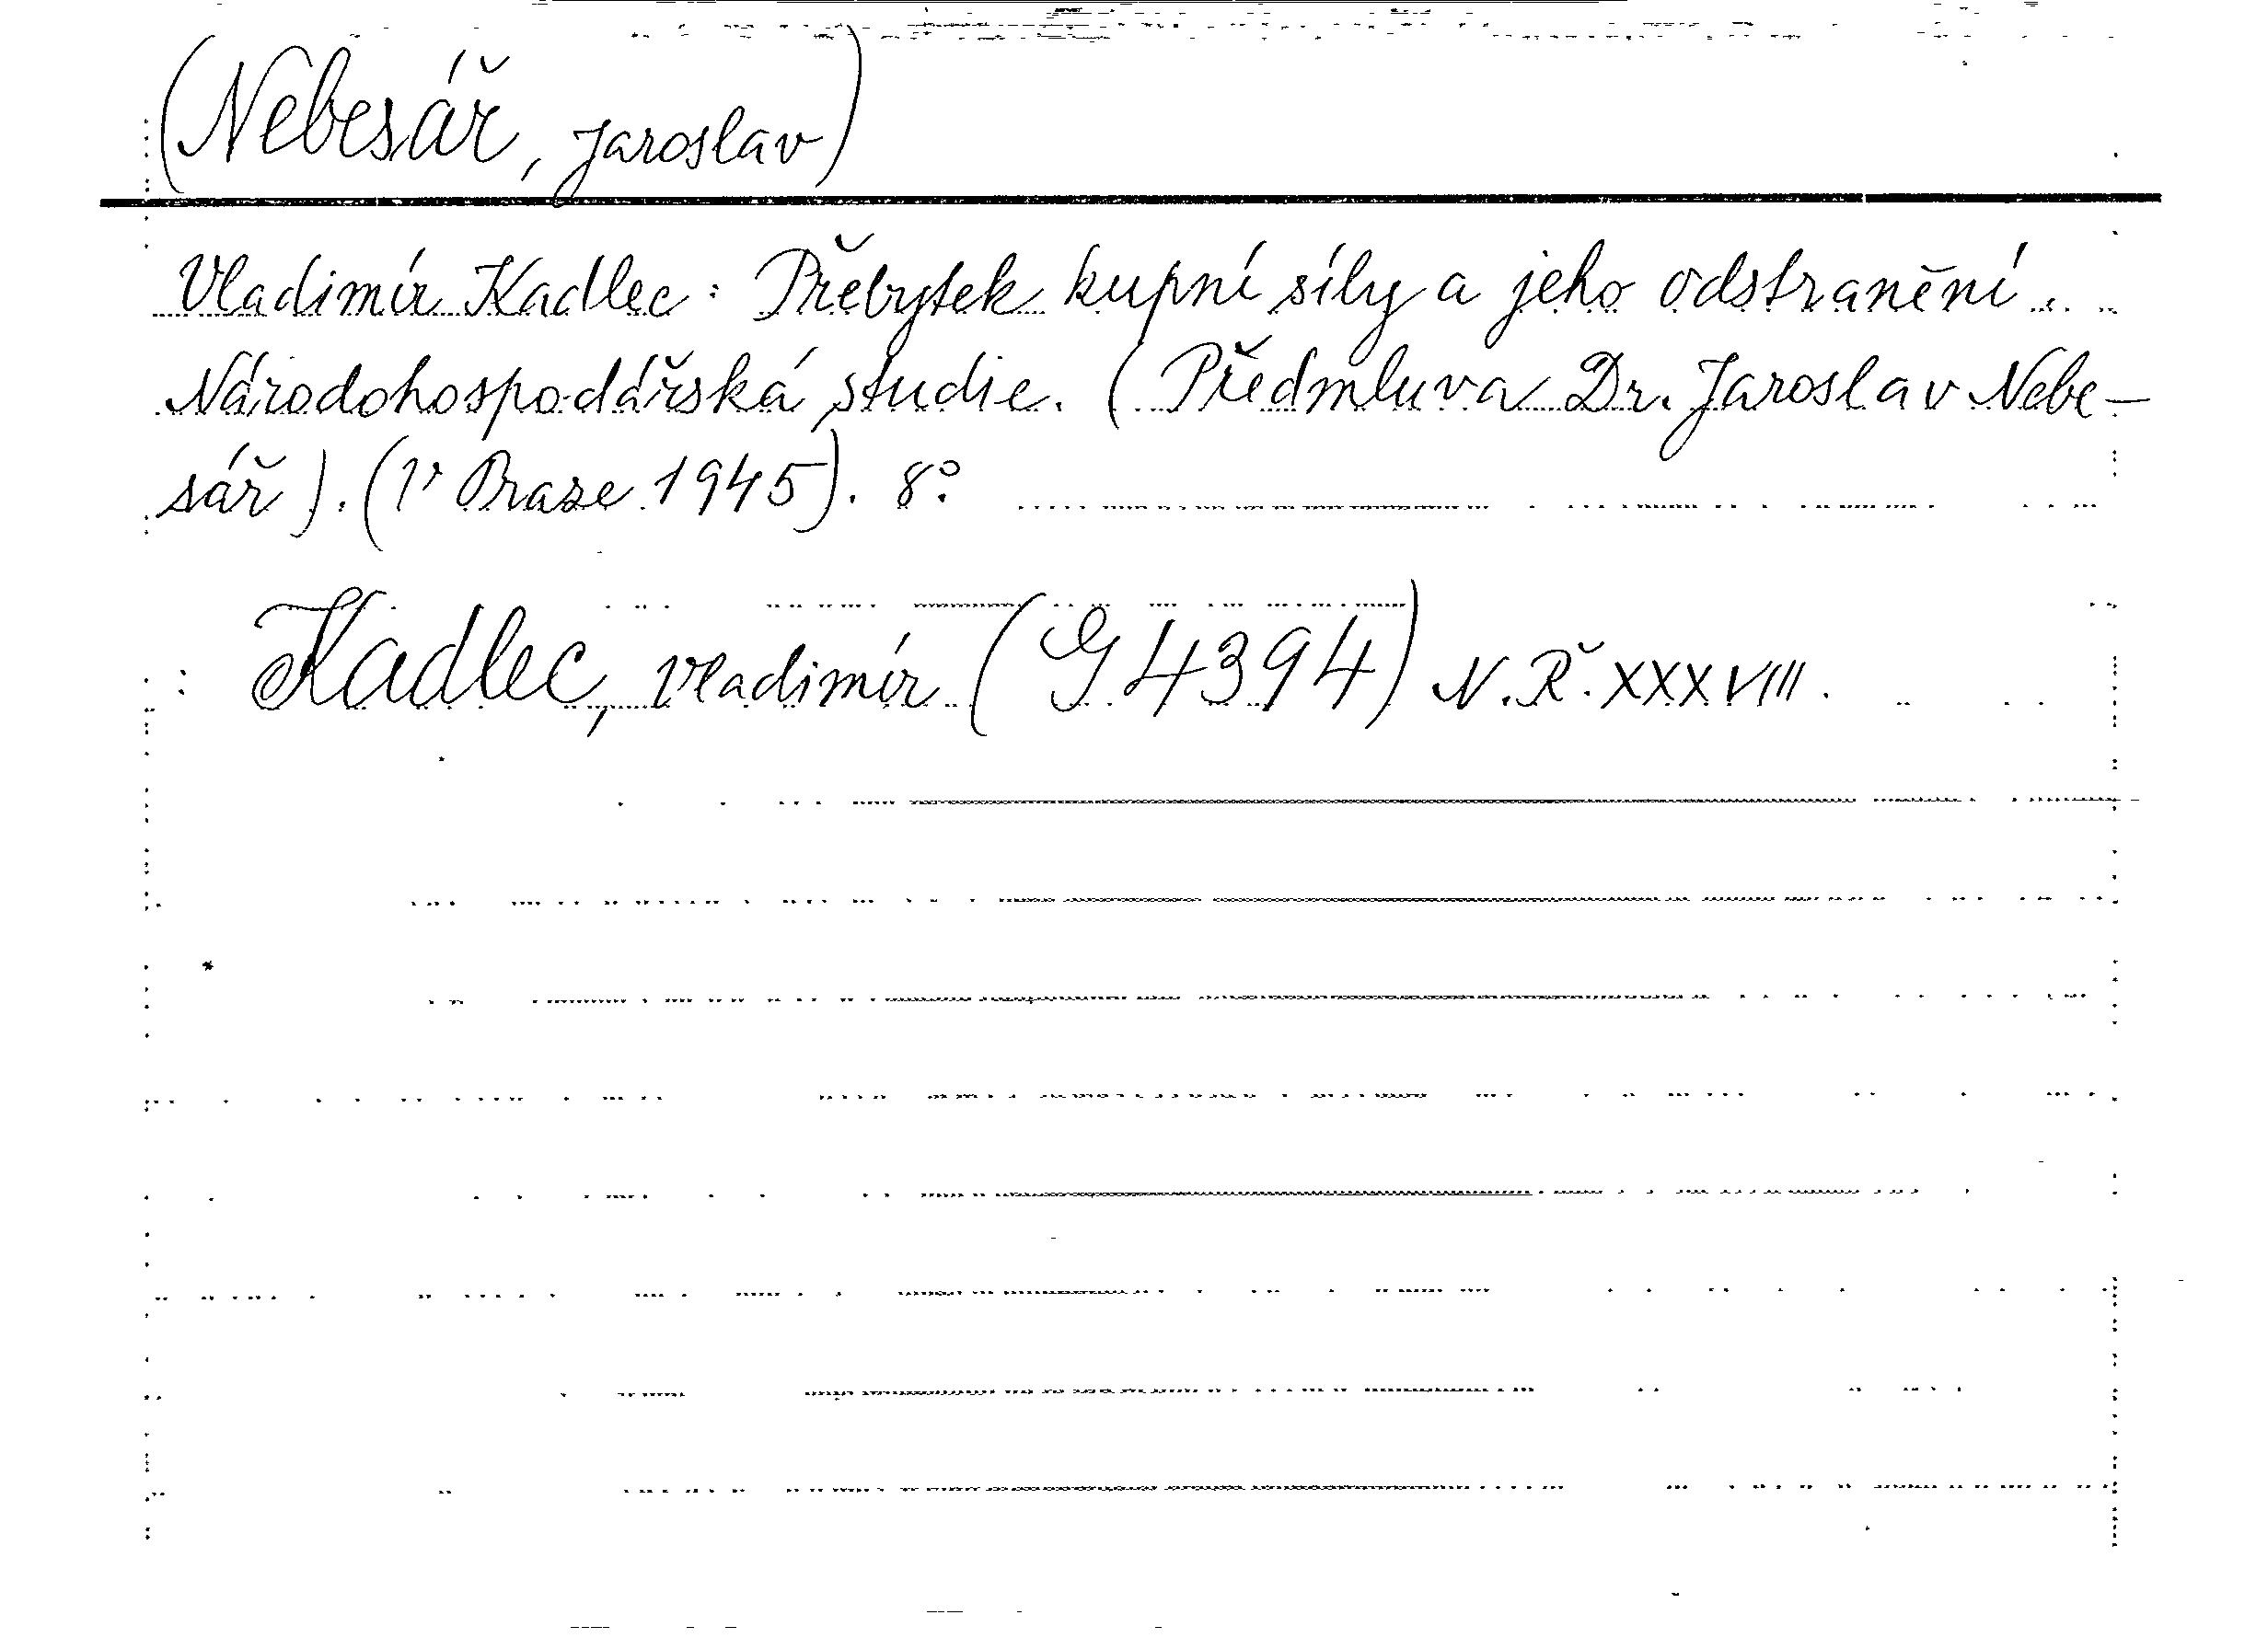 (Nebesář, Jaroslav)
Vladimír Kadlec: Přebytek kupní síly a jeho odstranění...
Národohospodářská studie. (Předmluva Dr. Jaroslav Nebe-
sář). (V Praze 1945). 8°.
: Kadlec, Vladimír (G 4394) N.Ř. XXXVIII.